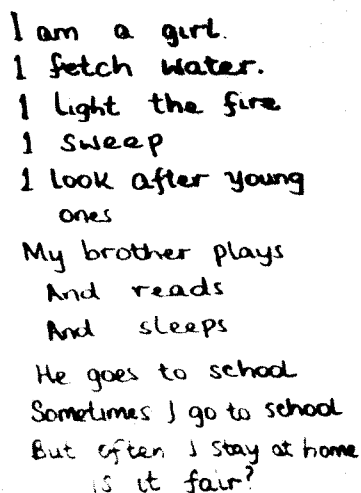 I am a girl.
I fetch water.
I light the fire
I sweep
I look after young
ones
My brother plays
And reads
And sleeps
He goes to school
Sometimes I go to school
But often I stay at home
is it fair?